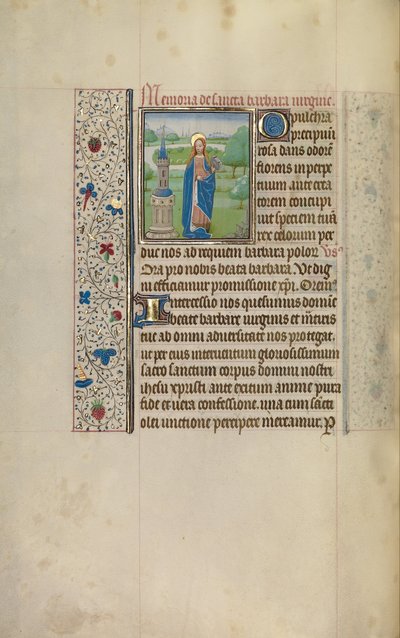 Memoria de sancta barbara virgine.
O pulchra
precipuu
rosa dans odorē
florens in perpe
tuum ante crea
torem concupi
uit speciem tuā
rex celorum per
duc nos ad requiem barbara polor Vs⁹
Ora pro nobis beata barbara. Vt dig
ni efficiamur promissione xp̄i. Orem⁹
Intercessio nos quesumus domine
beate barbare virginis et m̄r̄is
tue ab omni aduersitate nos protegat.
ut per eius interuentum gloriosissimum
sacro sanctum corpus domini nostri
ihesu xpristi ante exitum anime pura
fide et vera confessione. una cum sācti
olei unctione percipere mereamur. P